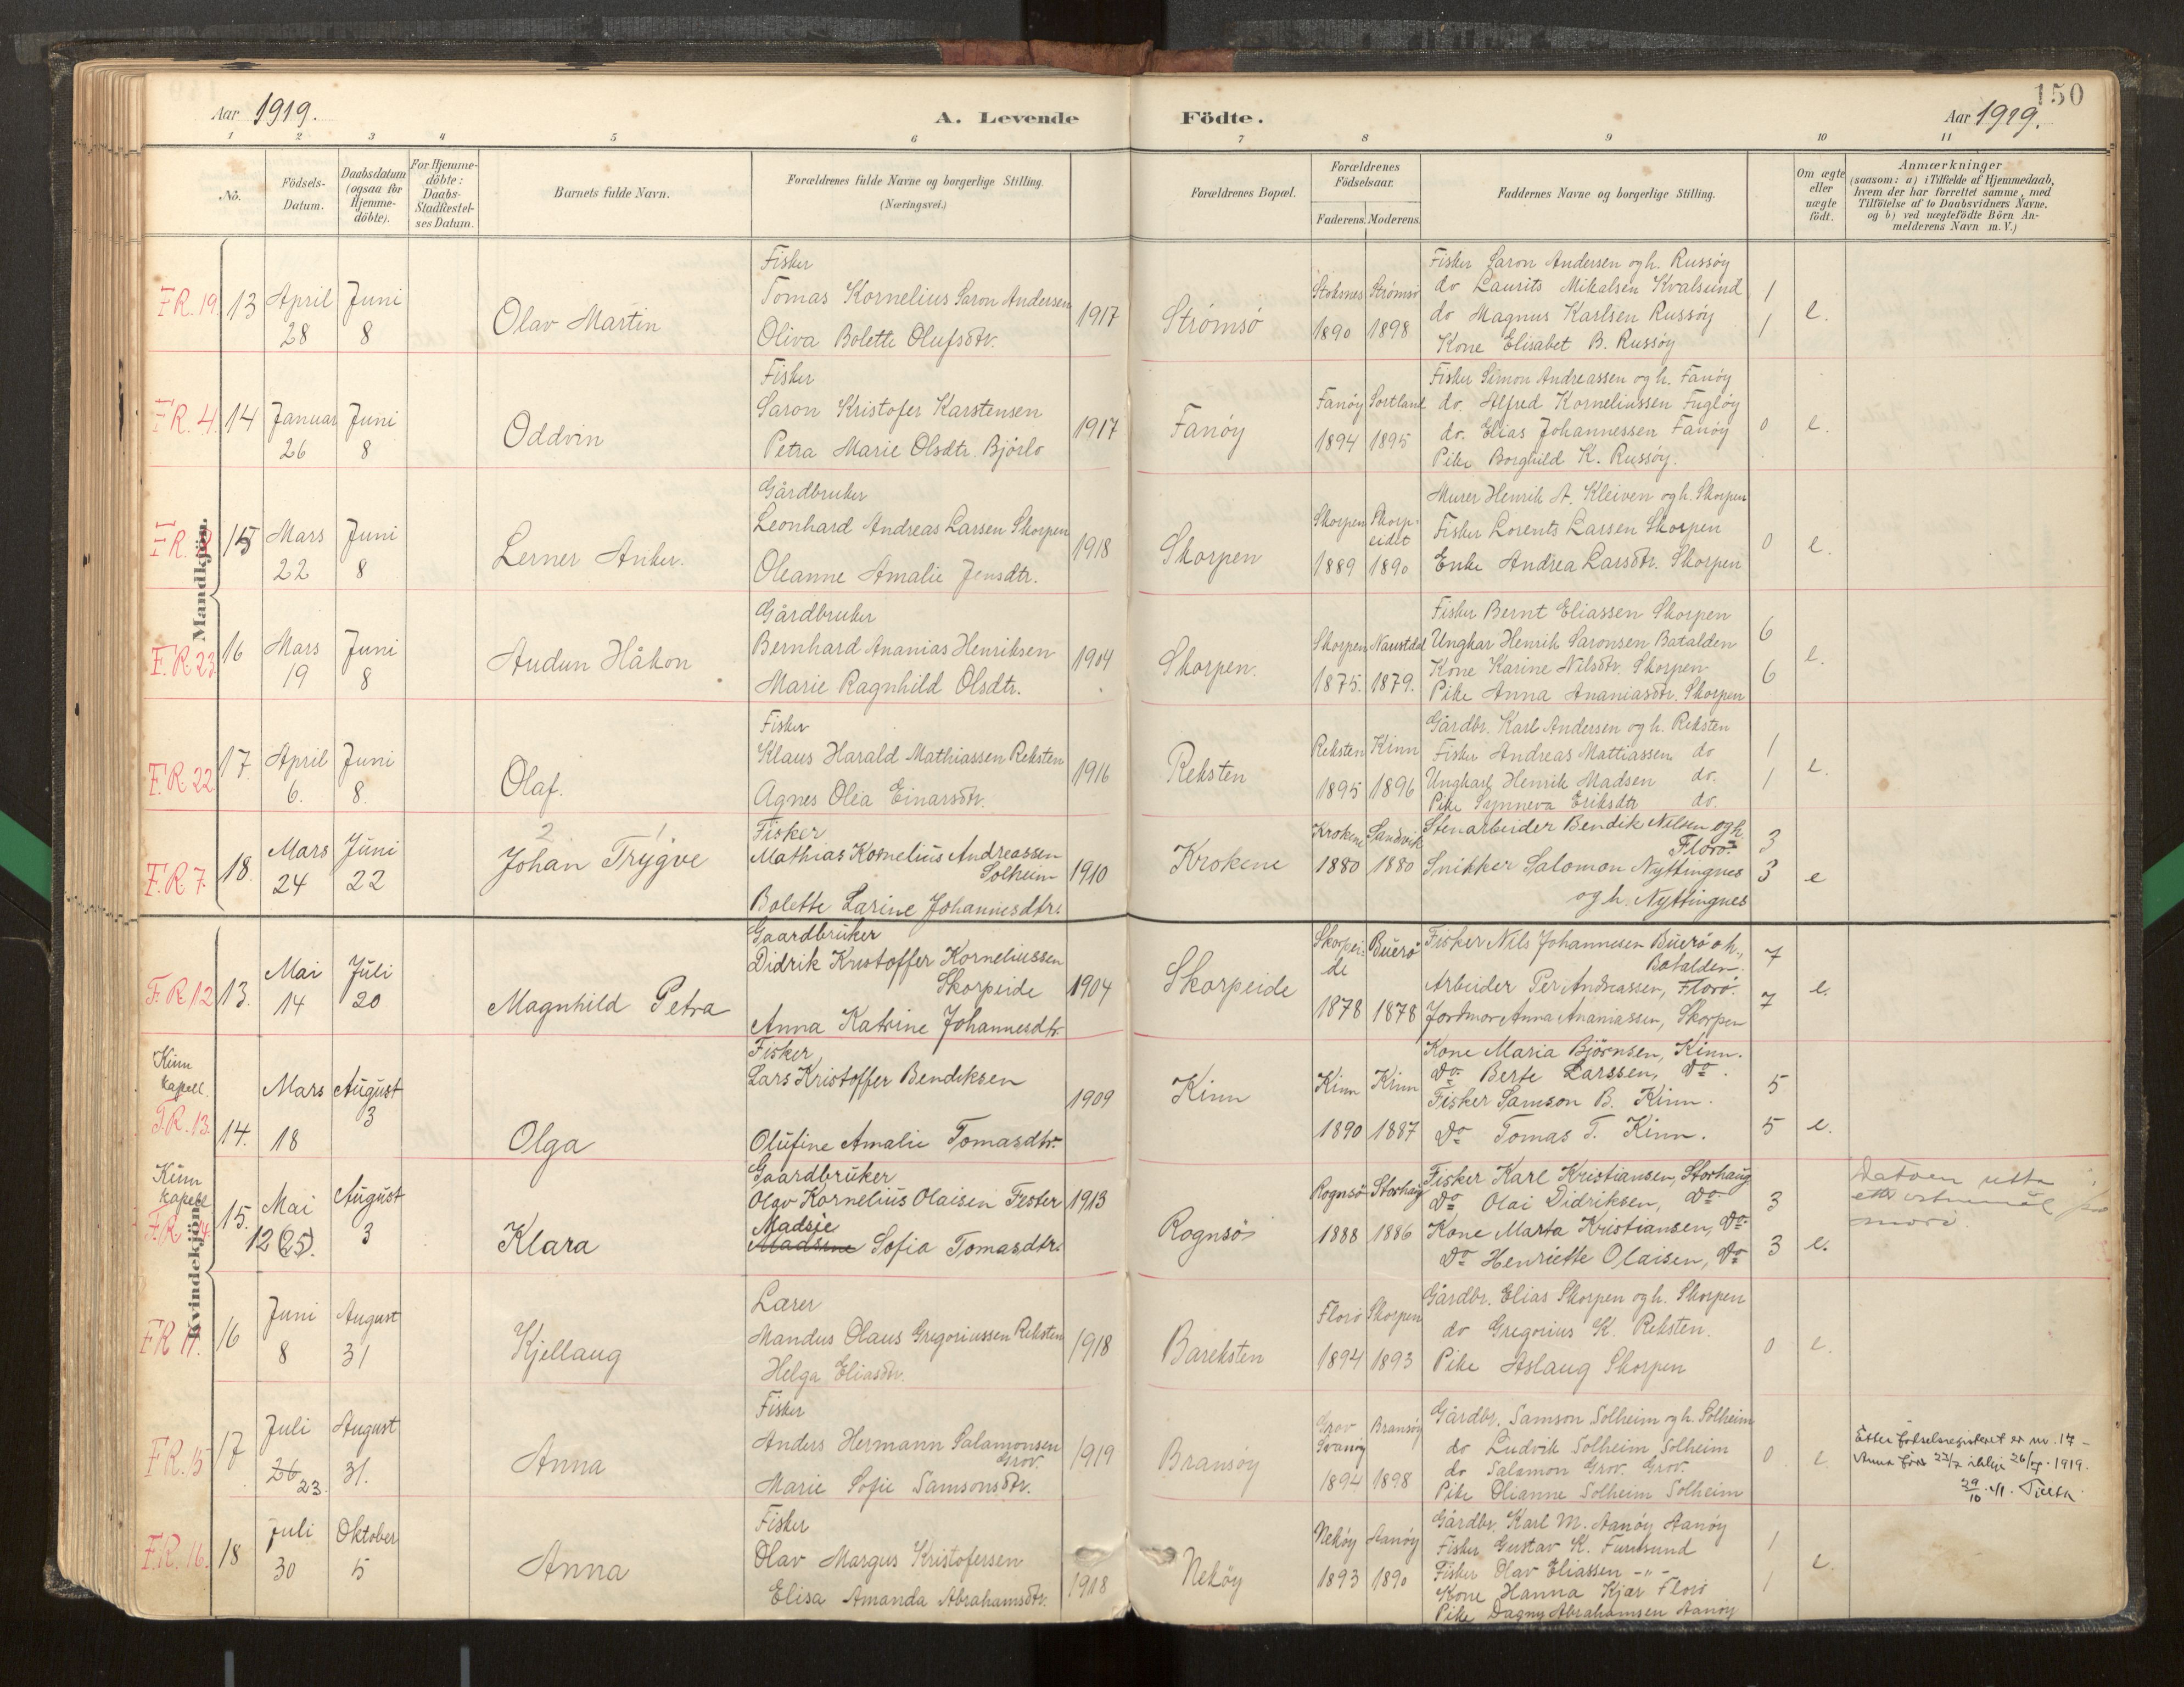 150
Aar 1919.
A. Levende Födte.
Aar 1919.
1 2 3 4 5 6 7 8 9 10 11
No.
Födsels-Datum.
Daabsdatum (ogsaa for Hjemme-döbte).
For Hjemme-döbte: Daabs-Stadfæstel-ses Datum.
Barnets fulde Navn.
Forældrenes fulde Navne og borgerlige Stilling.
(Næringsvei.)
Forældrenes Bopæl.
Forældrenes Födselsaar.
Faderens. Moderens.
Faddernes Navne og borgerlige Stilling.
Om ægte eller uægte födt.
Anmærkninger
(saasom: a) i Tilfælde af Hjemmedaab,
hvem der har forrettet samme, med
Tilföielse af to Daabsvidners Navne,
og b) ved uægtefödte Börn An-
melderens Navn m.V.)
Mandkjön.
F.R. 19. 13 April 28 Juni 8
Olav Martin
Fisker
Tomas Kornelius Saron Andersen
Oliva Bolette Olufsdtr.
1917
Strömsö
Stoknes 1890 Strömsö 1898
Fisker Saron Andersen og h. Russöy
do Laurits Mikalsen Kvalsund
do Magnus Karlsen Russöy
Kone Elisabet B. Russöy
1
1
e.
F.R. 4. 14 Januar 26 Juni 8
Oddvin
Fisker
Saron Kristofer Karstensen
Petra Marie Olsdtr. Björlo
1917
Fanöy
Fanöy 1894 Sortland 1895
Fisker Simon Andreassen og h. Fanöy
do. Alfred Korneliussen Fuglöy
do. Elias Johannessen Fanöy
Pike Borghild K. Russöy.
0
e.
F.R. 15 Mars 22 Juni 8
Lerner Anker.
Gårdbruker
Leonhard Andreas Larsen Skorpen
Oleanne Amalie Jensdtr.
1918
Skorpen
Skorpen 1889 Skorp-eidet 1890
Murer Henrik A. Kleiven og h. Skorpen
Fisker Lorents Larsen Skorpen
Enke Andrea Larsdtr. Skorpen
0
e.
F.R. 23. 16 Mars 19 Juni 8
Audun Håkon
Gårdbruker
Bernhard Ananias Henriksen
Marie Ragnhild Olsdtr.
1904
Skorpen.
Skorpen 1875. Naustdal 1879.
Fisker Bernt Eliassen Skorpen
Ungkar Henrik Saronsen Batalden
Kone Karine Nilsdtr. Skorpen
Pike Anna Ananiasdtr. Skorpen
6
6
e.
F.R. 22 17. April 6. Juni 8.
Olaf.
Fisker
Klaus Harald Mathiassen Reksten
Agnes Olea Einarsdtr.
1916
Reksten
Reksten 1895 Kinn 1896
Gårdbr. Karl Andersen og h. Reksten
Fisker Andreas Mattiassen do
Ungkarl Henrik Madsen do.
Pike Synneva Eriksdtr do.
1
1
e.
F.R. 7. 18. Mars 24 Juni 22
2 1
Johan Trygve
Fisker
Mathias Kornelius Andreassen
Solheim
Bolette Larine Johannesdtr.
1910
Krokene
Krokene 1880 Sandvik 1880
Stenarbeider Bendik Nilsen og h.
Florö.
Snikker Salomon Nyttingnes
og h. Nyttingnes
3
3
e
Kvindekjön.
F.R. 12 13. Mai 14 Juli 20
Magnhild Petra
Gaardbruker
Didrik Kristoffer Korneliussen
Skorpeide
Anna Katrine Johannesdtr.
1904
Skorpeide
Skorpei-de 1878 Buerö 1878
Fisker Nils Johannesen Buerö o h.,
Batalden.
Arbeider Per Andreassen, Florö.
Jordmor Anna Ananiassen, Skorpen
7
7
e.
Kinn kapell.
F.R. 13. 14. Mars 18 August 3
Olga
Fisker
Lars Kristoffer Bendiksen
Olufine Amalie Tomasdtr.
1909
Kinn
Kinn 1890 Kinn 1887
Kone Maria Björnsen, Kinn.
Do Berte Larssen, Do.
Fisker Samson B. Kinn.
Do Tomas T. Kinn.
5
5
e.
Kinn kapell
F.R. 14. 15. Mai 12 (25). August 3
Klara
Gaardbruker
Olav Kornelius Olaisen Fester
Madsje
Madsine Sofia Tomasdtr.
1913
Rognsö
Rognsö 1888 Storhaug 1886
Fisker Karl Kristiansen, Storhaug
Do Olai Didriksen, Do
Kone Marta Kristiansen, Do
Do Henriette Olaisen, Do
3
3
e.
F.R. 11. 16 Juni 8 August 31
Kjellaug
Lærer
Mandus Olaus Gregoriussen Reksten
Helga Eliasdtr.
1918
Bareksten
Florö 1894 Skorpen 1893
Gårdbr. Elias Skorpen og h. Skorpen
do Gregorius K. Reksten.
Pike Aslaug Skorpen
0
e.
F.R. 15 17 Juli 26 23. August 31.
Anna
Fisker
Anders Hermann Salamonsen
Grov.
Marie Sofie Samsonsdtr.
1919
Bransöy
Grov Svanöy 1894 Bransöy 1898
Gårdbr. Samson Solheim og h. Solheim
do Ludvik Solheim Solheim
do Salamon Grov. Grov.
Pike Olianne Solheim Solheim
0
e.
Etter fødselsregisteret er nr. 17 -
Anna født 23/7 ikkje 26/7 1919.
29/10 41.
F.R. 16. 18 Juli 30 Oktober 5
Anna
Fisker
Olav Margus Kristofersen
Elisa Amanda Abrahamsdtr.
1918
Neköy
Neköy 1893 Aanöy 1890
Gårdbr. Karl M. Aanöy Aanöy
Fisker Gustav K. Furesund
Fisker Olav Eliassen -"-
Kone Hanna Kjær Florö
Pike Dagny Abrahamsen Aanöy
1
1
e.